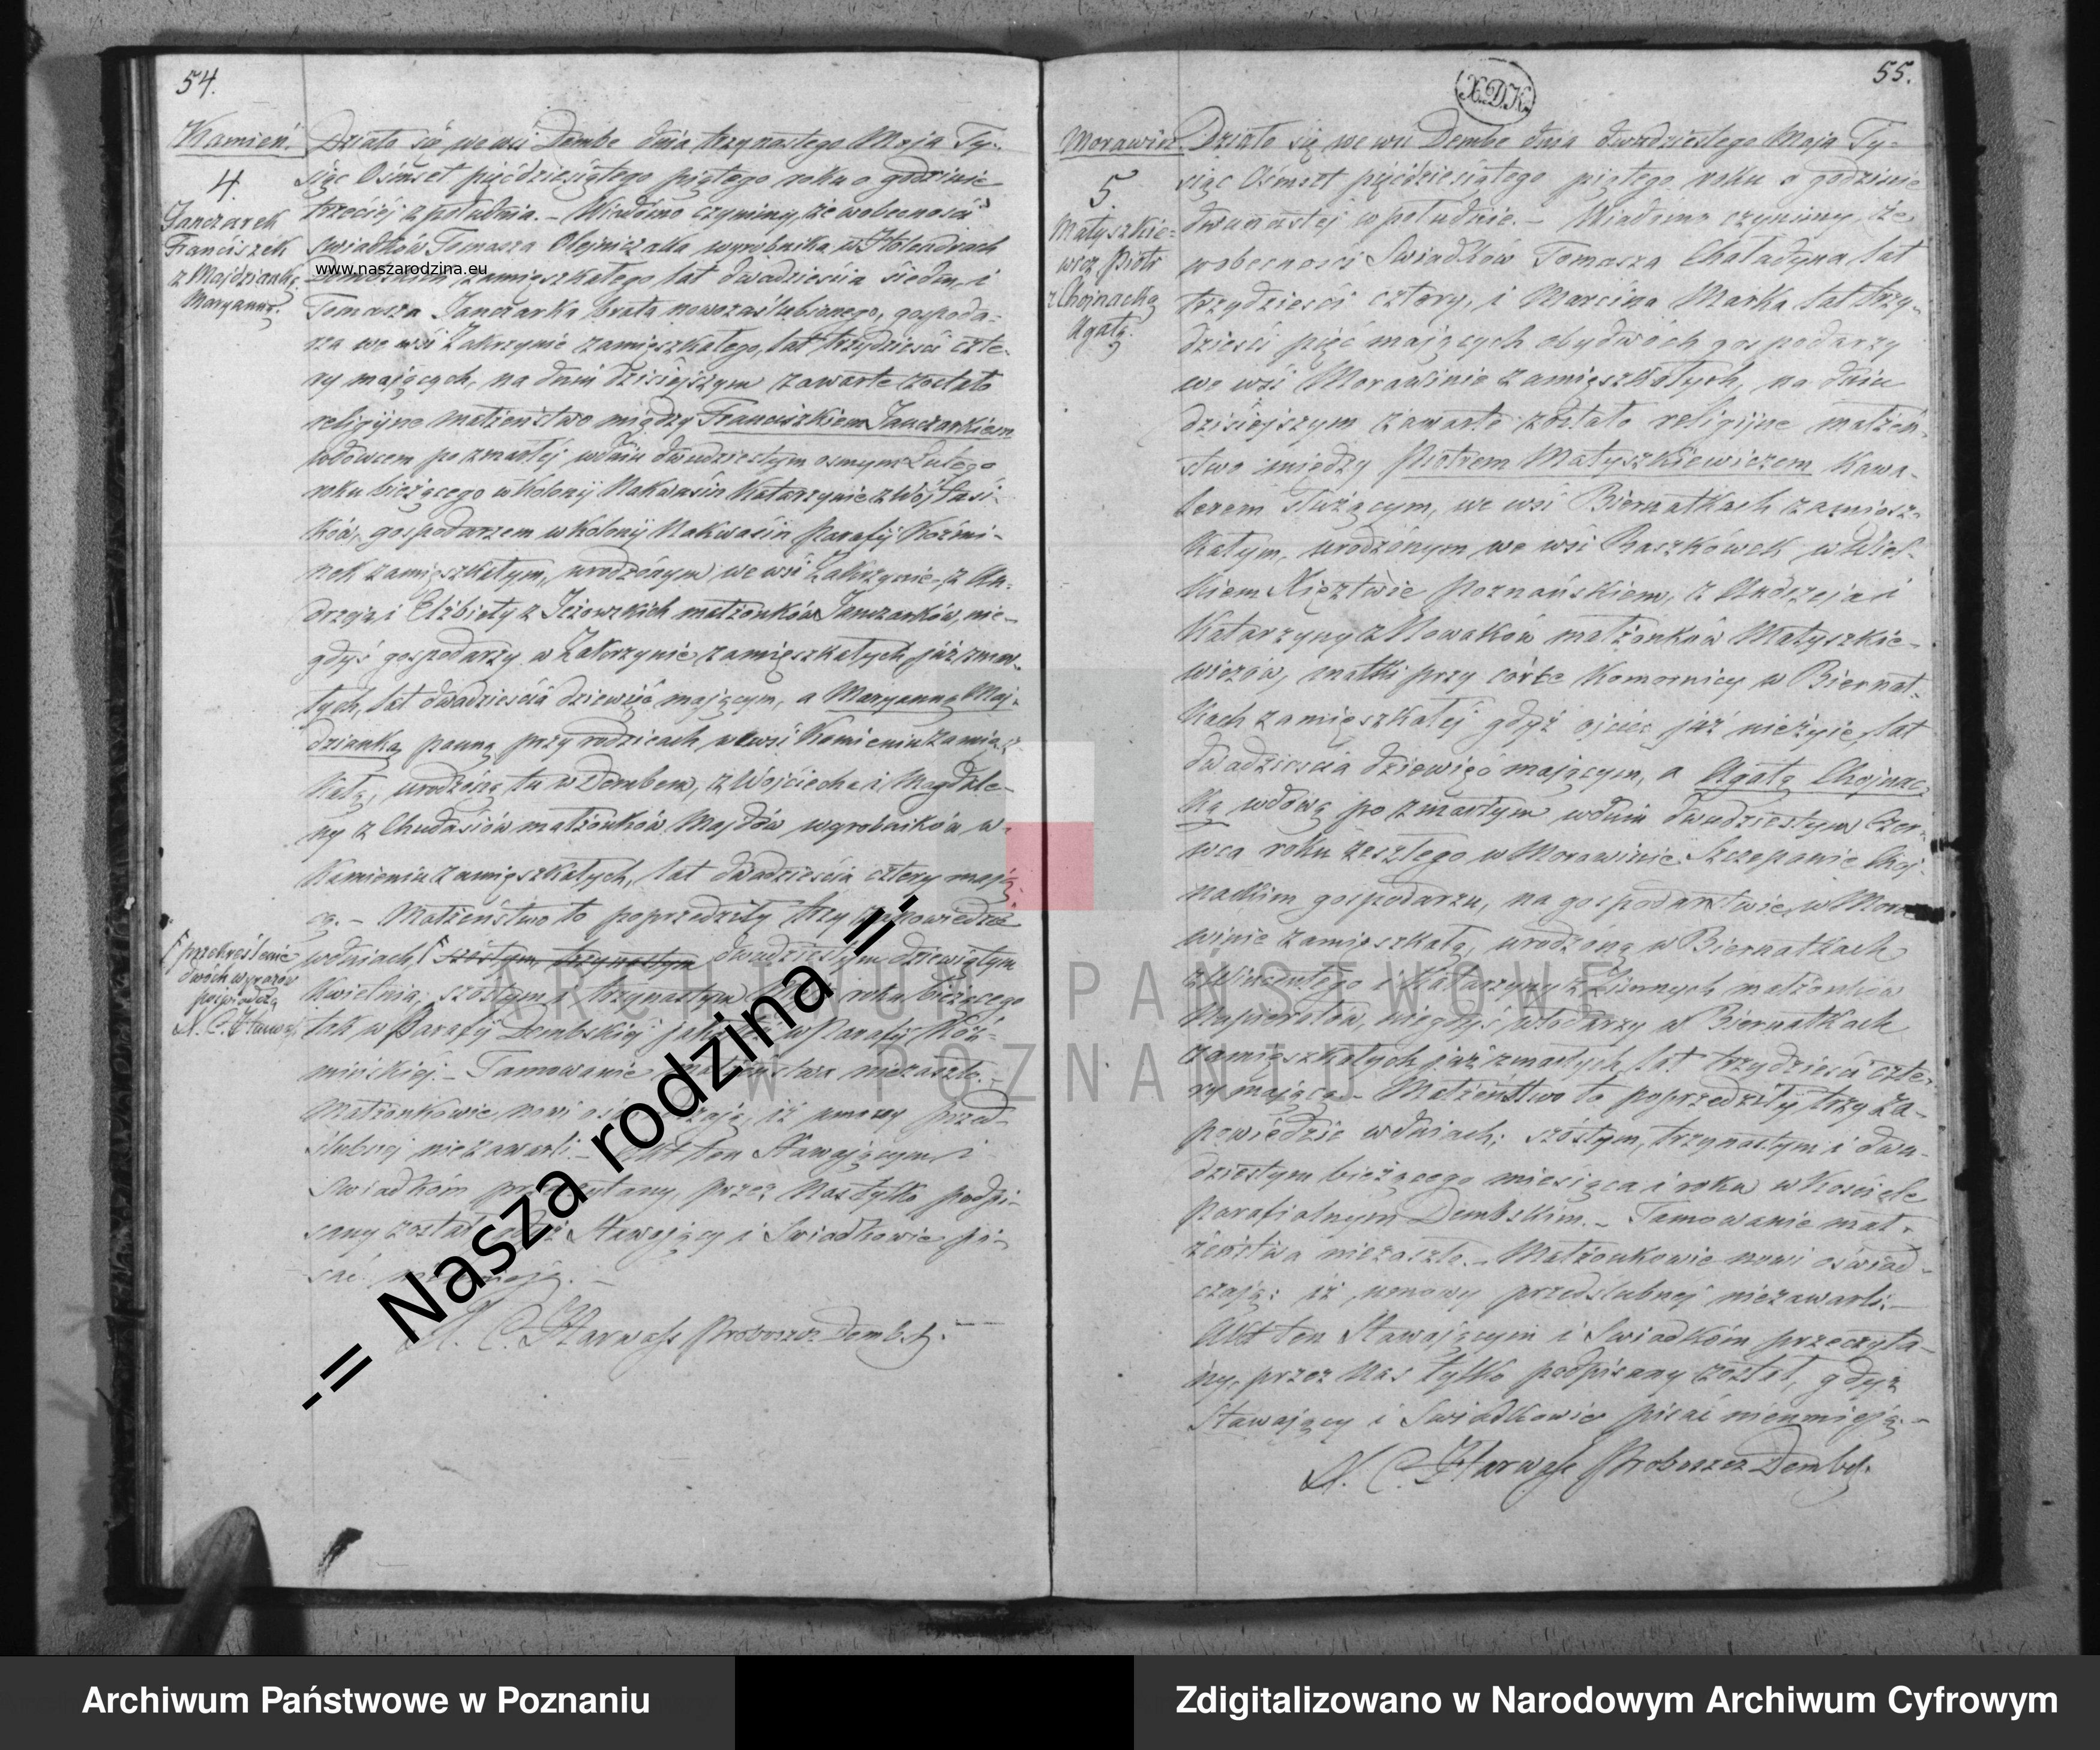 54.
Kamień.
4.
Janczarek
Franciszek
z Majdzianką
Maryanną.
Działo się we wsi Dembe dnia trzynastego Maja Ty-
siąc Ośmset pięćdziesiątego piątego roku o godzinie
trzeciéj z południa. – Wiadomo czyniemy, że w obecności
Swiadków Tomasza Olejniczaka wyrobnika w Holendrach
www.naszarodzina.eu
Dembskich zamięszkałego lat dwadzieścia siedm, i
Tomasza Janczarka brata nowozaślubionego, gospoda-
rza we wsi Zakrzynie zamięszkałego, lat trzydzieści czte-
ry mających, na dniu dzisiejszym zawarte zostało
religijne małżeństwo między Franciszkiem Janczarkiem
wdowcem po zmarłéj w dniu dwudziestym osmym Lutego
roku bieżącego w Kolonij Nakwasin Katarzynie z Wojtasi-
ków, gospodarzem w Kolonij Nakwasin Parafij Koźmi-
nek zamięszkałym, urodzonym we wsi Zakrzynie, z An-
drzeja i Elżbiety z Jeżowskich małżonków Janczarków, nie-
gdyś gospodarzy w Zakrzynie zamięszkałych już zmar-
łych, lat dwadzieścia dziewięć mającym, a Maryanną Maj-
dzianką panną przy rodzicach we wsi Kamieniu zamięsz-
kałą, urodzoną tu w Dembem, z Wojciecha i Magdale-
ny z Chudasiów małżonków Majdów wyrobników w
Kamieniu zamięszkałych, lat dwadzieścia cztery mają-
cą. – Małżeństwo to poprzedziły trzy zapowiedzie
w dniach, szóstym, trzynastym dwudziestym dziewiątym
przekreślenie
dwóch wyrazów
poświadcza
Kwietnia, szóstym i trzynastym Maja roku bieżącego
tak w Parafij Dembskiéj jako i w Parafij Koź-
minskiéj. – Tamowanie małżeństwa niezaszło. –
Małżonkowie nowi oświadczają, iż umowy przed-
ślubnej niezawarli. – Akt ten Stawającym i
Swiadkóm przeczytany, przez Nas tylko podpi-
sany został, gdyż Stawający i Swiadkowie pi-
sać nieumieją. –
Proboszcz Dembsk.
-= Nasza rodzina =-
X.D.K.
55.
Morawin.
5.
Matyszkie-
wicz Piotr
z Chojnacką
Agatą.
Działo się we wsi Dembe dnia dwudziestego Maja Ty-
siąc Ośmset pięćdziesiątego piątego roku o godzinie
dwunastéj w południe. – Wiadomo czyniemy, że
w obecności Swiadków Tomasza Chaładyna lat
trzydzieści cztery, i Marcina Marka lat trzy-
dzieści pięć mających obydwóch gospodarzy
we wsi Morawinie zamięszkałych, na dniu
dzisiejszym zawarte zostało religijne małżeń-
stwo między Piotrem Matyszkiewiczem Kawa-
lerem służącym, we wsi Biernatkach zamiesz-
kałym, urodzonym we wsi Raszkówek w Wiel-
kiem Xięztwie Poznańskiem, z Andrzeja i
Katarzyny z Nowaków małżonków Matyszkie-
wiczów, matki przy córce Komornicy w Biernat-
kach zamięszkałéj gdyż ojciec już nieżyie, lat
dwadzieścia dziewięć mającym, a Agatą Chojnac-
ką wdową po zmarłym w dniu dwudziestym Czer-
wca roku zeszłego w Morawinie Szczepanie Choj-
nackim gospodarzu, na gospodarstwie w Mora-
winie zamieszkałą, urodzoną w Biernatkach
z Wincentego i Katarzyny z Zimnych małżonków
Kupierotów, niegdyś włodarzy w Biernatkach
zamięszkałych już zmarłych, lat trzydzieści czte-
ry mającą. – Małżeństwo to poprzedziły trzy Za-
powiedzie w dniach; szóstym, trzynastym i dwu-
dziestym bieżącego miesiąca i roku w Kościele
Parafialnym Dembskim. – Tamowanie mał-
żeństwa niezaszło. – Małżonkowie nowi oświad-
czają: iż umowy przedślubnej niezawarli. –
Akt ten Stawającym i Swiadkóm przeczyta-
ny, przez Nas tylko podpisany został, gdyż
Stawający i Swiadkowie pisać nieumieją. –
Proboszcz Dembsk.
ARCHIWUM PAŃSTWOWE
W POZNANIU
Archiwum Państwowe w Poznaniu
Zdigitalizowano w Narodowym Archiwum Cyfrowym